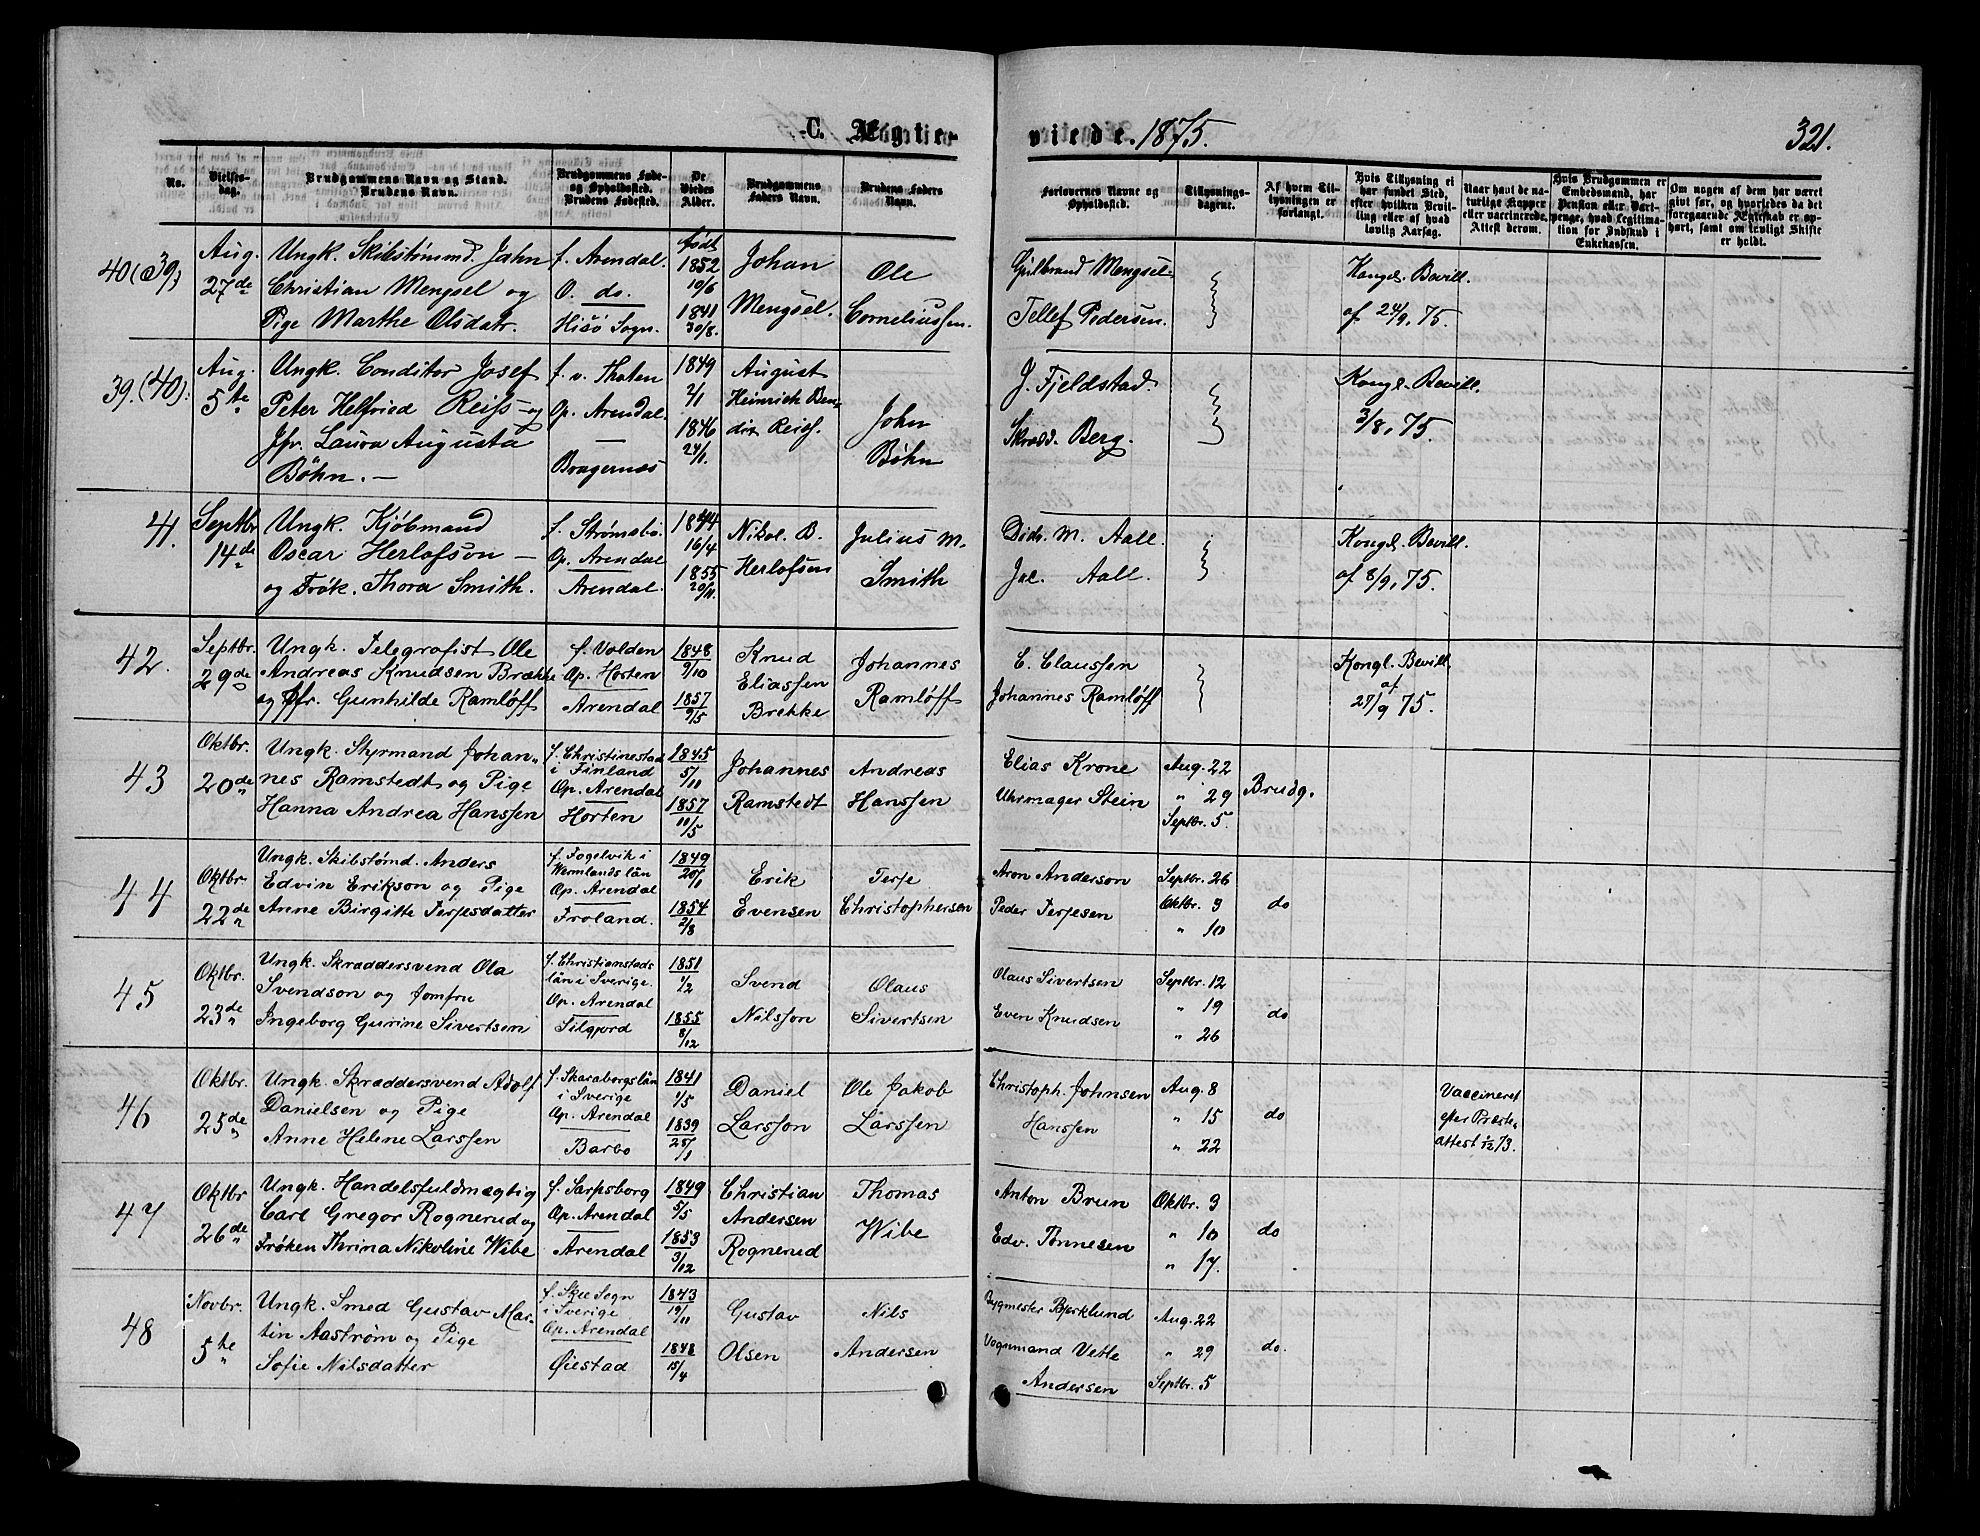 C. Ægte-
viede. 1875.
321.
No.
Vielses-
dag.
Brudgommens Navn og Stand.
Brudens Navn.
Brudgommens Føde-
og Opholdssted.
Brudens Fødested.
De
Viedes
Alder.
Brudgommens
Faders Navn.
Brudens Faders
Navn.
Forlovernes Navne og
Opholdssted.
Tillysnings-
dagene.
Af hvem Til-
lysningen er
forlangt.
Hvis Tillysning ei
har fundet Sted,
efter hvilken Bevil-
ling eller af hvad
lovlig Aarsag.
Naar havt de na-
turlige Kopper
eller vaccinerede.
Attest derom.
Hvis Brudgommen er
Embedsmand, har
Pension eller Vart-
penge, hvad Legitima-
tion for Indskud i
Enkekassen.
Om nogen af dem har været
gift før, og hvorledes da det
foregaaende Ægteskab er op-
hørt, samt om lovligt Skifte
er holdt.
40 (39)
Aug.
27de
Ungk. Skibstømmd. Jahn
Christian Mengsel og
Pige Marthe Olsdatr.
f. Arendal.
O. do.
Hisö Sogn.
født
1852
10/6
1841
30/8.
Johan
Mengsel.
Ole
Corneliussen.
Gulbrand Mengsel
Tellef Pedersen.
Kongl. Bevill.
af 24/9, 75.
39. (40).
Aug.
5te
Ungk. Conditor Josef
Peter Helfried Reiss og
Jfr. Laura Augusta
Böhn. —
f. v. Thoten
Op. Arendal.
Bragernæs
1849
2/1
1846
24/1.
August
Heinrich Ben-
dix Reiss.
John
Böhn
J. Fjeldstad.
Skrædd. Berg.
Kongl. Bevill.
3/8, 75.
41.
Septbr
14de
Ungk. Kjöbmand
Oscar Herlofson —
og Frök. Thora Smith.
f. Strømsbo.
Op. Arendal
Arendal.
1844
16/4
1855
20/11.
Nikol. B.
Herlofsen
Julius M.
Smith
Didr. M. Aall.
Jac. Aall.
Kongl. Bevill.
af 8/9, 75.
42.
Septbr.
29de
Ungk. Telegrafist Ole
Andreas Knudsen Brække
og Jfr. Gunhilde Ramlöff
f. Volden
Op. Horten
Arendal
1848
9/10
1857
9/5
Knud
Eliassen
Brekke
Johannes
Ramlöff
C. Claussen
Johannes Ramlöff
Kongl. Bevill.
af
27/9 75.
43
Oktbr.
20de
Ungk. Styrmand Johan-
nes Ramstedt og Pige
Hanna Andrea Hanssen
f. Christinestad
i Finland
Op. Arendal
Horten
1845
5/11
1857
11/5
Johannes
Ramstedt
Andreas
Hanssen
Elias Krone
Uhrmager Stein
Aug. 22
" 29
Septbr. 5.
Brudg.
44
Oktbr.
22de
Ungk. Skibstømd. Anders
Edvin Erikson og Pige
Anne Birgitte Terjesdatter
f. Fogelvik i
Wermlands län
Op. Arendal
Froland.
1849
20/1
1854
2/8
Erik
Evensen
Terje
Christophersen
Aron Anderson
Peder Terjesen
Septbr. 26
Oktbr. 3
" 10
do
45
Oktbr.
23de
Ungk. Skraddersvend Ola
Svendson og Jomfru
Ingeborg Gurine Sivertsen
f. Christianstads
län i Sverige.
Op. Arendal
Silgjord
1851
1/2
1855
8/12
Svend
Nilsson
Olaus
Sivertsen
Olaus Sivertsen
Even Knudsen
Septbr. 12
" 19
" 26
do
46
Oktbr.
25de
Ungk. Skraddersvend Adolf
Danielsen og Pige
Anne Helene Larssen
f. Skaraborgs län
i Sverige
Op. Arendal
Barbo
1841
1/5
1839
25/1
Daniel
Larsson
Ole Jakob
Larssen
Christoph. Johnsen
Hanssen
Aug. 8
" 15
" 22
do
Vaccineret
efter Præste-
attest 1/12 73.
47
Oktbr
26de
Ungk. Handelsfuldmægtig
Carl Gregor Rognerud og
Frøken Thrina Nikoline Wibe
f. Sarpsborg
Op. Arendal
Arendal
1849
5/5
1853
3/12
Christian
Andersen
Rognerud
Thomas
Wibe
Anton Brun
Edv. Tønnesen
Oktbr. 3
" 10
" 17.
do
48
Novbr.
5te
Ungk. Smed Gustav Mar-
tin Aastrøm og Pige
Sofie Nilsdatter
f. Skee Sogn
i Sverige
Op. Arendal
Øiestad
1843
19/11
1848
15/4
Gustav
Olsen
Nils
Andersen
Bygmester Bjerklund
Vognmand Vetle
Andersen
Aug. 22
" 29
Septbr. 5
do.